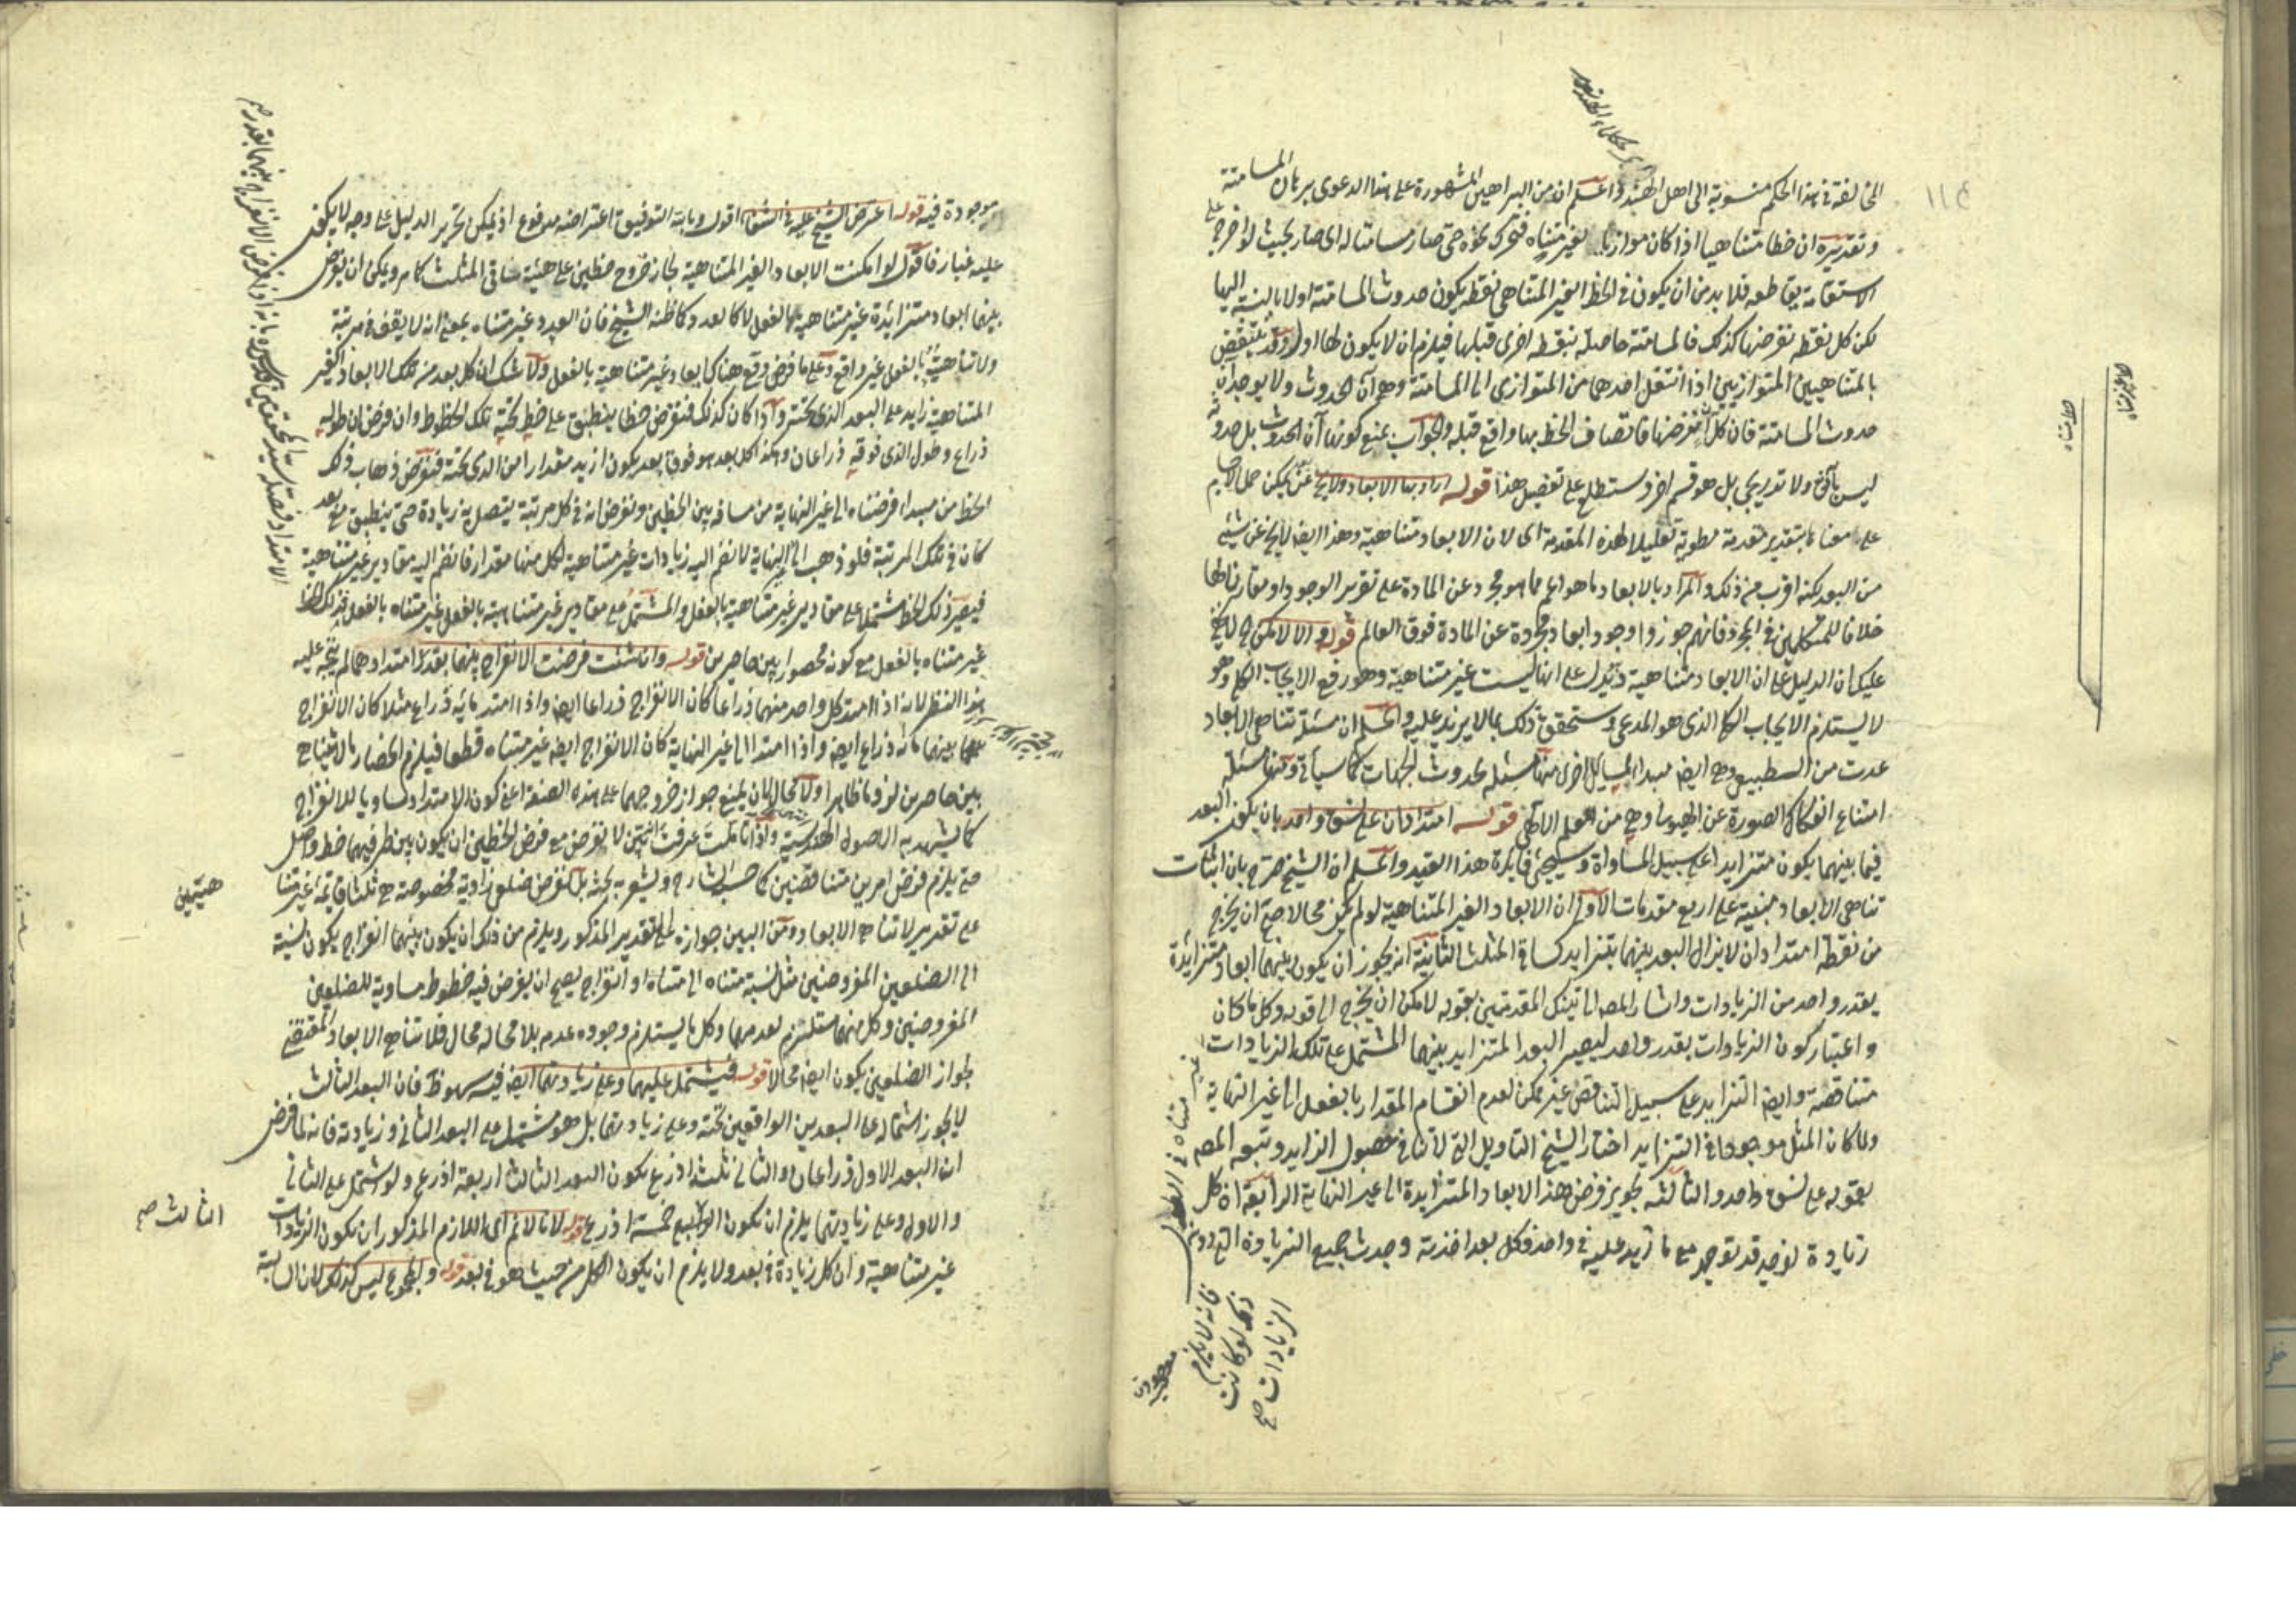 ١١٤
المخالفة في هذا الحكم منسوبة الى اهل الهند واعلم ان من البراهين المشهورة على هذا الدعوى برهان المسامتة
وتقريره ان خطا متناهيا اذا كان موازيا لغير متناه فتحرك نحوه حتى صار مسامتا له اى صار بحيث لو اخرج على
الاستقامة يقاطعه فلا بد من ان يكون في الخط الغير المتناهى نقطة يكون حدوث المسامتة اولا بالنسبة اليها
لكن كل نقطة نفرضها كذلك فالمسامتة حاصلة بنقطة اخرى قبلها فيلزم ان لا يكون لها اول وقد ينتقض
بالمتناهيين المتوازيين اذا انتقل احدهما من المتوازى الى المسامتة وهو آن الحدوث ولا يوجد ان
حدوث المسامتة فان كل آن نفرضها فاتصاف الخط بها واقع قبله والجواب بمنع كونها آن الحدوث بل حدوثه
ليس بآنى ولا تدريجى بل هو قسم اخر وستطلع على تفصيل هذا قوله اراد بها الابعاد ولا يخ عن يمكن حمل الكلام
على معناه بتقدير مقدمة مطوية تعليلا لهذه المقدمة اى لان الابعاد متناهية وهذا ايضا لا يخ عن شئ
من البعد لكنه اقرب من ذلك والمراد بالابعاد ما هو اعم مما هو مجرد عن المادة على تقرير الوجود او مقارنا لها
خلافا للمتكلمين في المجرد فانهم جوزوا وجود ابعاد مجردة عن المادة فوق العالم قوله والا لامكن ح لا يخ
عليك ان الدليل على ان الابعاد متناهية وتدل على انها ليست غير متناهية وهو رفع الايجاب الكلى وهو
لا يستلزم الايجاب الكلى الذى هو المدعى وستحقق ذلك بما لا مزيد عليه واعلم ان مسئلة تناهى الابعاد
عدت من الطبيعى وهى ايضا مبدا لمسايل اخرى منها مسئلة حدوث الجهات كما سيأتى ومنها مسئلة
امتناع انفكاك الصورة عن الهيولى وهى من العلم الالهى قوله امتدادان على نسق واحد بان يكون البعد
فيما بينهما يكون متزايدا على سبيل المساواة وسيجئ فايدة هذا القيد واعلم ان الشيخ صرح بان اثبات
تناهى الابعاد مبنية على اربع مقدمات الاولى ان الابعاد الغير المتناهية لو لم يكن محالا صح ان يخرج
من نقطة امتدادان لا يزال البعد بينهما يتزايد كساقى المثلث الثانية انه يجوز ان يكون بينهما ابعاد متزايدة
بقدر واحد من الزيادات واشار المصه الى تينك المقدمتين بقوله لامكن ان يخرج الى قوله وكل ما كان
واعتبار كون الزيادات بقدر واحد ليصير البعد المتزايد بينهما المشتمل على تلك الزيادات غير متناه في الطول
متناقصة وايضا التزايد على سبيل التناقص غير ممكن لعدم انقسام المقدار بالفعل الى غير النهاية
ولما كان المثل موجودا في التزايد اختار الشيخ التاويل التى لا تنافى حصول الزايد وتبعه المصه
بقوله على نسق واحد والثالثة تجويز فرض هذه الابعاد المتزايدة الى غير النهاية الرابعة ان كل
زيادة توجد قد توجد مع ما تزيد عليه في واحد فكل بعد اخذته وجدت جميع الزيادة التى دونه
فانه لا يلزم
ذلك لو كانت
الزيادات صح
موجودة فيه قوله اعترض الشيخ عليه في الشفا اقول وبالله التوفيق اعتراضه مدفوع اذ يمكن تحرير الدليل على وجه لا يكون
عليه غبار فاقول لو امكنت الابعاد الغير المتناهية لجاز خروج خطين على هيئة ساقى المثلث كما مر ويمكن ان يفرض
بينهما ابعاد متزايدة غير متناهية بالفعل لا كالعدد كما ظنه الشيخ فان العدد غير متناه بمعنى انه لا يقف في مرتبة
ولا تناهيه بالفعل غير واقع وعلى ما فرض وقع هناك ابعاد غير متناهية بالفعل ولا شك ان كل بعد من تلك الابعاد الغير
المتناهية زايد على البعد الذى تحته واذا كان كذلك فنفرض خطا ينطبق على خط تحته تلك الخطوط وان فرض ان طوله
ذراع وطول الذى فوقه ذراعان وهكذا كل بعد هو فوق بعد يكون ازيد مقدارا من الذى تحته فنفرض ذهاب ذلك
الخط من مبداء فرضناه الى غير النهاية من مسافة بين الخطين ونفرض انه في كل مرتبة يتصل به زيادة حتى ينطبق مع بعد
كان في تلك المرتبة فلو ذهب الى غير النهاية لانضم اليه زيادات غير متناهية لكل منها مقدار فانضم اليه مقادير غير متناهية
فيصير ذلك الخط مشتملا على مقادير غير متناهية بالفعل والمشتمل على مقادير غير متناهية بالفعل غير متناه بالفعل فذلك الخط
غير متناه بالفعل مع كونه محصورا بين حاصرين قوله وان شئت فرضت الانفراج بينهما بقدر امتدادهما لم يتجه عليه
هذا النظر لانه اذا امتد كل واحد منهما ذراعا كان الانفراج ذراعا ايضا واذا امتد مائة ذراع مثلا كان الانفراج
بينهما مائة ذراع ايضا واذا امتدا الى غير النهاية كان الانفراج ايضا غير متناه قطعا فيلزم انحصار ما لا يتناهى
بين حاصرين لزوما ظاهرا ولا مجال لان يمنع جواز خروجهما على هذه الصفة اعنى كون الامتداد مساويا للانفراج
كما يشهد به الاصول الهندسية واذا تاملت عرفت انه لا نفرض مع فرض الخطين ان يكون بين طرفيهما خط واصل
حتى يلزم فرض امرين متناقضين كما حسب الشارح ويشعر به بحثه بل نفرض ضلعى زاوية مخصوصة هى ثلثا قائمة غير متناهيين
على تقدير لا تناهى الابعاد ومن البين جوازه على التقدير المذكور ويلزم من ذلك ان يكون بينهما انفراج يكون نسبته
الى الضلعين المفروضين مثل نسبة متناه الى متناه او انفراج يصح ان يفرض فيه خطوط مساوية للضلعين
المفروضين وكل منهما مستلزم لعدمهما وكل ما يستلزم وجوده عدمه بلا محالة محال فلا تناهى الابعاد المقتضى
لجواز الضلعين يكون ايضا محالا قوله فيشتمل عليهما وعلى زيادتهما ايضا فيه سهو ظ فان البعد الثالث
لا يجوز اشتماله على البعدين الواقعين تحته وعلى زيادتهما بل هو مشتمل على البعد الثانى وزيادته فانه لما فرض
ان البعد الاول ذراعان والثانى ثلثة اذرع يكون البعد الثالث اربعة اذرع ولو اشتمل على الثانى
والاول وعلى زيادتهما يلزم ان يكون خمسة اذرع قوله لانا لا نم اى اللازم المذكور ان يكون الزيادات
غير متناهية وان كل زيادة في بعد ولا يلزم ان يكون الكل من حيث هو في بعد قوله والمجموع ليس كذلك لان السالبة
هيئتين
الثالث صح